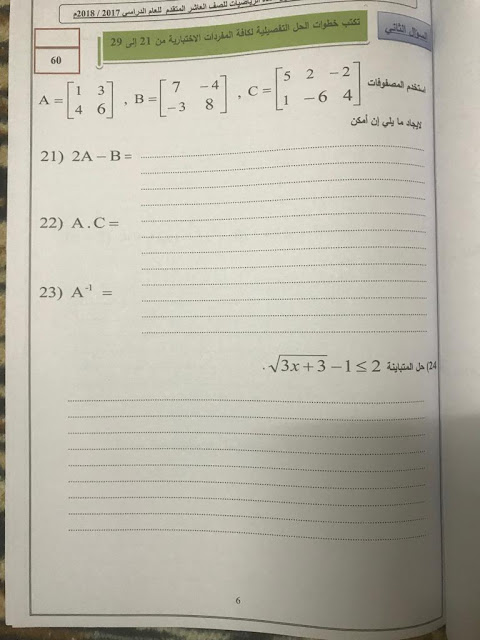 الرياضيات للصف العاشر المتقدم للعام الدراسي 2017 / 2018م
السؤال الثاني
تكتب خطوات الحل التفصيلية لكافة المفردات الاختبارية من 21 إلى 29
60
استخدم المصفوفات A = [1 3; 4 6] , B = [7 −4; −3 8] , C = [5 2 −2; 1 −6 4]
لإيجاد ما يلي إن أمكن
21) 2A − B =
22) A . C =
23) A⁻¹ =
24) حل المتباينة √(3x+3) − 1 ≤ 2 .
6